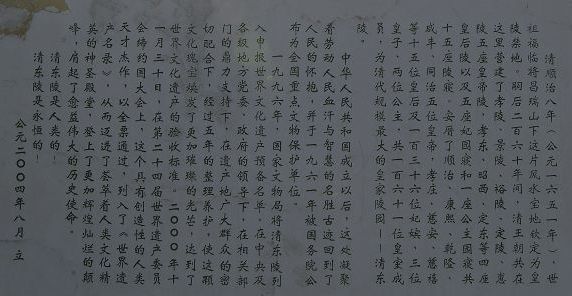 清顺治八年（公元一六五一年），世
祖福临将昌瑞山下这片风水宝地钦定为皇
陵禁地。嗣后二百六十年间，清王朝共在
这里营建了孝陵、景陵、裕陵、定陵、惠
陵五座皇帝陵，孝东、昭西、定东等四座
皇后陵以及五座妃园寝和一座公主园寝共
十五座陵寝。安厝了顺治、康熙、乾隆、
咸丰、同治五位皇帝，孝庄、慈安、慈禧
等十五位皇后及一百三十六位妃嫔、三位
皇子、两位公主，共一百六十一位皇室成
员，为清代规模最大的皇家陵园——清东
陵。
中华人民共和国成立以后，这处凝聚
着劳动人民血汗与智慧的名胜古迹回到了
人民的怀抱，并于一九六一年被国务院公
布为全国重点文物保护单位。
一九九六年，国家文物局将清东陵列
入申报世界文化遗产预备名单，在中央及
各级地方党委、政府的领导下，在相关部
门的鼎力支持下，在遗产地广大群众的密
切配合下，经过五年的整理养护，使这颗
文化瑰宝焕发了更加璀璨的光芒，达到了
世界文化遗产的验收标准。二〇〇〇年十
一月三十日，在第二十四届世界遗产委员
会缔约国大会上，这个具有创造性的人类
天才杰作，以全票通过，列入了《世界遗
产名录》，从而迈进了荟萃着人类文化精
英的神圣殿堂，登上了更加辉煌灿烂的颠
峰，肩起了愈益伟大的历史使命。
清东陵是人类的！
清东陵是永恒的！
公元二〇〇四年八月 立